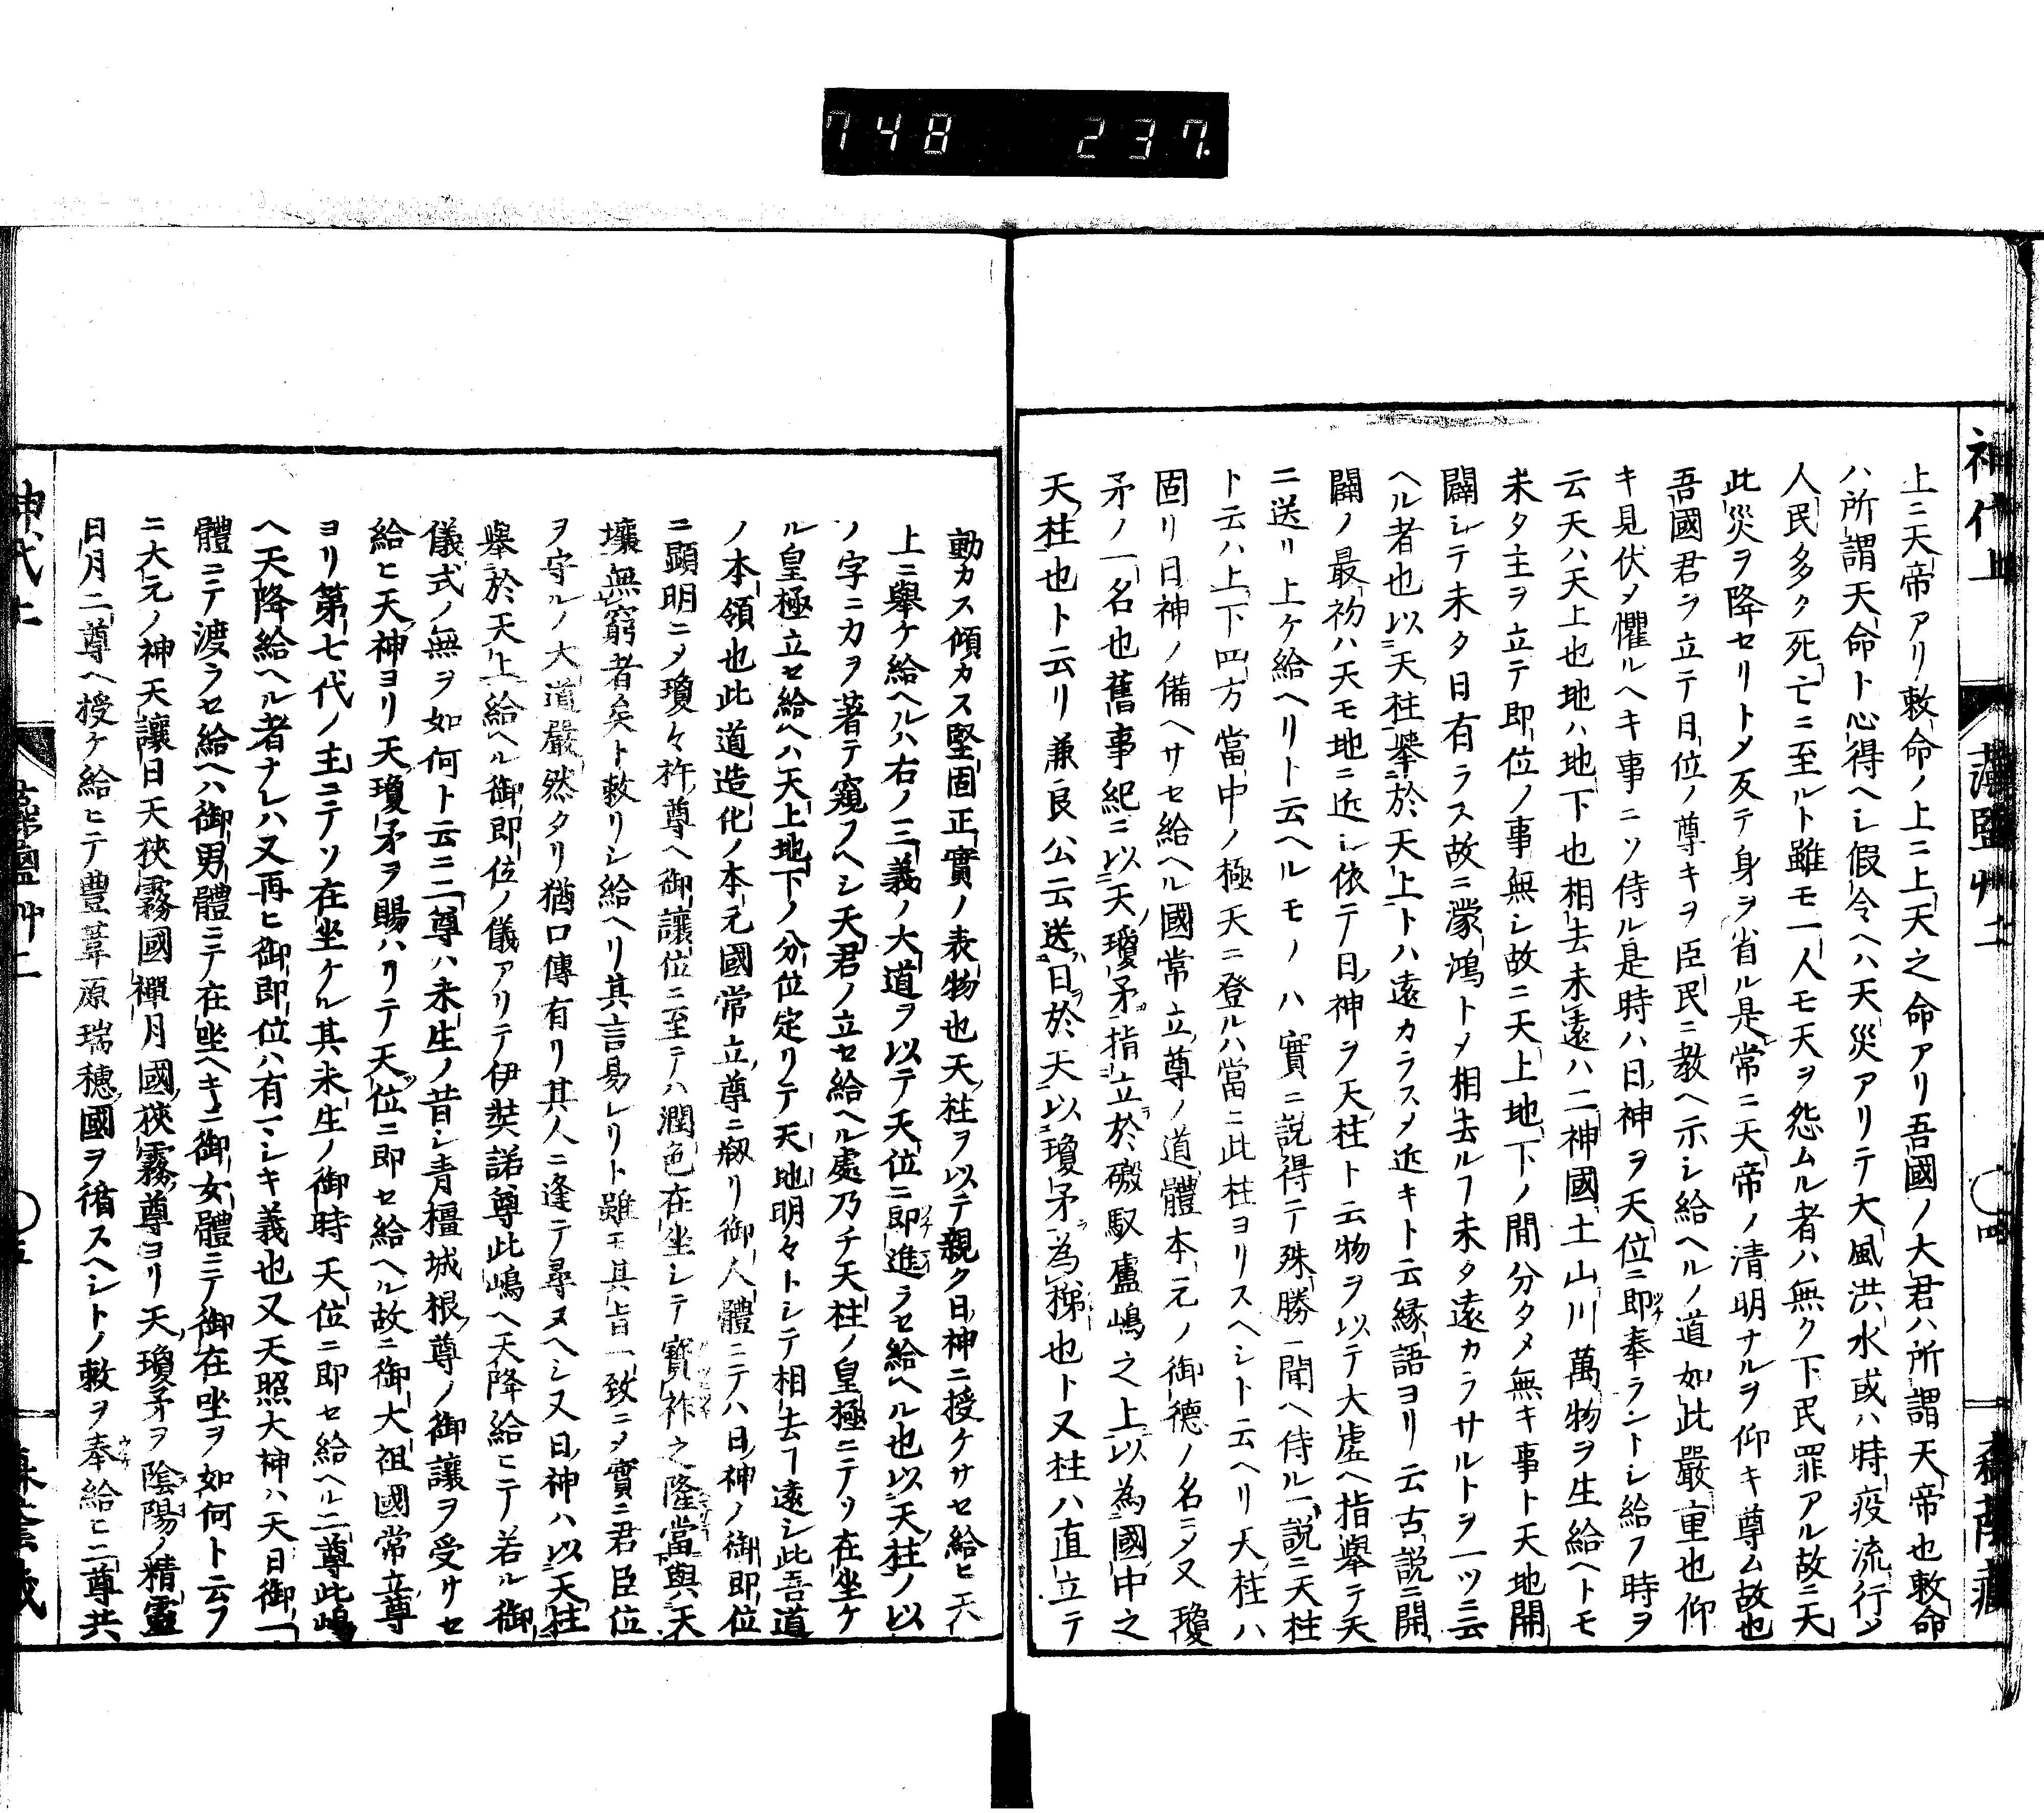 748 237.
神代上 藻鹽艸二 〇四
上ニ天帝アリ敕命ノ上ニ上天之命アリ吾國ノ大君ハ所謂天帝也敕命
ハ所謂天命ト心得ヘシ假令ヘハ天災アリテ大風洪水或ハ時疫流行ノ
人民多ク死亡ニ至ルト雖モ一人モ天ヲ怨ムル者ハ無ク下民罪アル故ニ天
此災ヲ降セリトメ反テ身ヲ省ル是常ニ天帝ノ清明ナルヲ仰キ尊ム故也
吾國君ヲ立テ日位ノ尊キヲ臣民ニ教ヘ示シ給ヘルノ道如此嚴重也仰
キ見伏メ懼ルヘキ事ニソ侍ル是時ハ日神ヲ天位ニ即奉ラントシ給フ時ヲ
云天ハ天上也地ハ地下也相去未遠ハ二神國土山川萬物ヲ生給ヘトモ
未タ主ヲ立テ即位ノ事無シ故ニ天上地下ノ間分タメ無キ事ト天地開
闢シテ未タ日有ラス故ニ濛鴻トメ相去ルフ未タ遠カラサルトヲ一ツニ云
ヘル者也以天柱擧於天上トハ遠カラスメ近キト云縁語ヨリ云古説ニ開
闢ノ最初ハ天モ地ニ近シ依テ日神ヲ天柱ト云物ヲ以テ大虚ヘ指擧テ天
ニ送リ上ケ給ヘリト云ヘルモノハ實ニ説得テ殊勝ニ聞ヘ侍ル一説ニ天柱
ト云ハ上下四方當中ノ極天ニ登ルハ當ニ此柱ヨリスヘシト云ヘリ天柱ハ
固リ日神ノ備ヘサセ給ヘル國常立尊ノ道體本元ノ御德ノ名ニメ又瓊
矛ノ一名也舊事紀ニ以天瓊矛指立於磤馭盧嶋之上以為國中之
天柱也ト云リ兼良公云送日於天以瓊矛為梯也ト又柱ハ直立テ
動カス傾カス堅固正實ノ表物也天柱ヲ以テ親ク日神ニ授ケサセ給ヒ天
上ニ擧ケ給ヘルハ右ノ三義ノ大道ヲ以テ天位ニ即進ラセ給ヘル也以天柱ノ以
ノ字ニカヲ著テ窺フヘシ天君ノ立セ給ヘル處乃チ天柱ノ皇極ニテソ在坐ケ
ル皇極立セ給ヘハ天上地下ノ分位定リテ天地明々トシテ相去フ遠シ此吾道
ノ本領也此道造化ノ本元國常立尊ニ剏リ御人體ニテハ日神ノ御即位
ニ顯明ニメ瓊々杵尊ヘ御讓位ニ至テハ潤色在坐シテ寶祚之隆當與天
壤無窮者矣ト敕リシ給ヘリ其言易レリト雖モ其旨一致ニメ實ニ君臣位
ヲ守ルノ大道嚴然タリ猶口傳有リ其人ニ逢テ尋ヌヘシ又日神ハ以天柱
擧於天上給ヘル御即位ノ儀アリテ伊弉諾尊此嶋ヘ天降給ヒテ若ル御
儀式ノ無ヲ如何ト云ニ二尊ハ未生ノ昔シ青橿城根尊ノ御讓ヲ受サセ
給ヒ天神ヨリ天瓊矛ヲ賜ハリテ天位ニ即セ給ヘル故ニ御大祖國常立尊
ヨリ第七代ノ主ニテソ在坐ケル其未生ノ御時天位ニ即セ給ヘル二尊此嶋
ヘ天降給ヘル者ナレハ又再ヒ御即位ハ有マシキ義也又天照大神ハ天日御一
體ニテ渡ラセ給ヘハ御男體ニテ在坐ヘキニ御女體ニテ御在坐ヲ如何ト云フ
ニ大元ノ神天讓日天狹霧國禪月國狹霧尊ヨリ天瓊矛ヲ陰陽ノ精靈
日月二尊ヘ授ケ給ヒテ豊葦原瑞穗國ヲ循スヘシトノ敕ヲ奉給ヒ二尊共